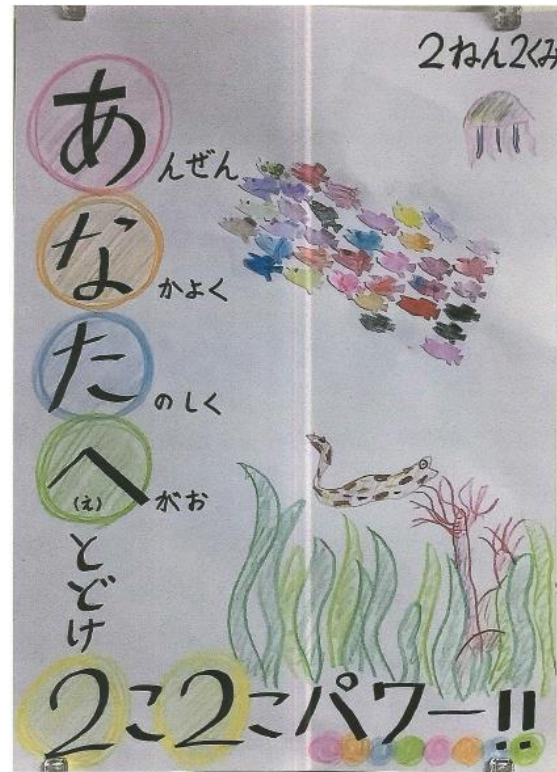 2ねん2くみ
あんぜん
なかよく
たのしく
へ(え)がお
とどけ
2こ2こパワー!!